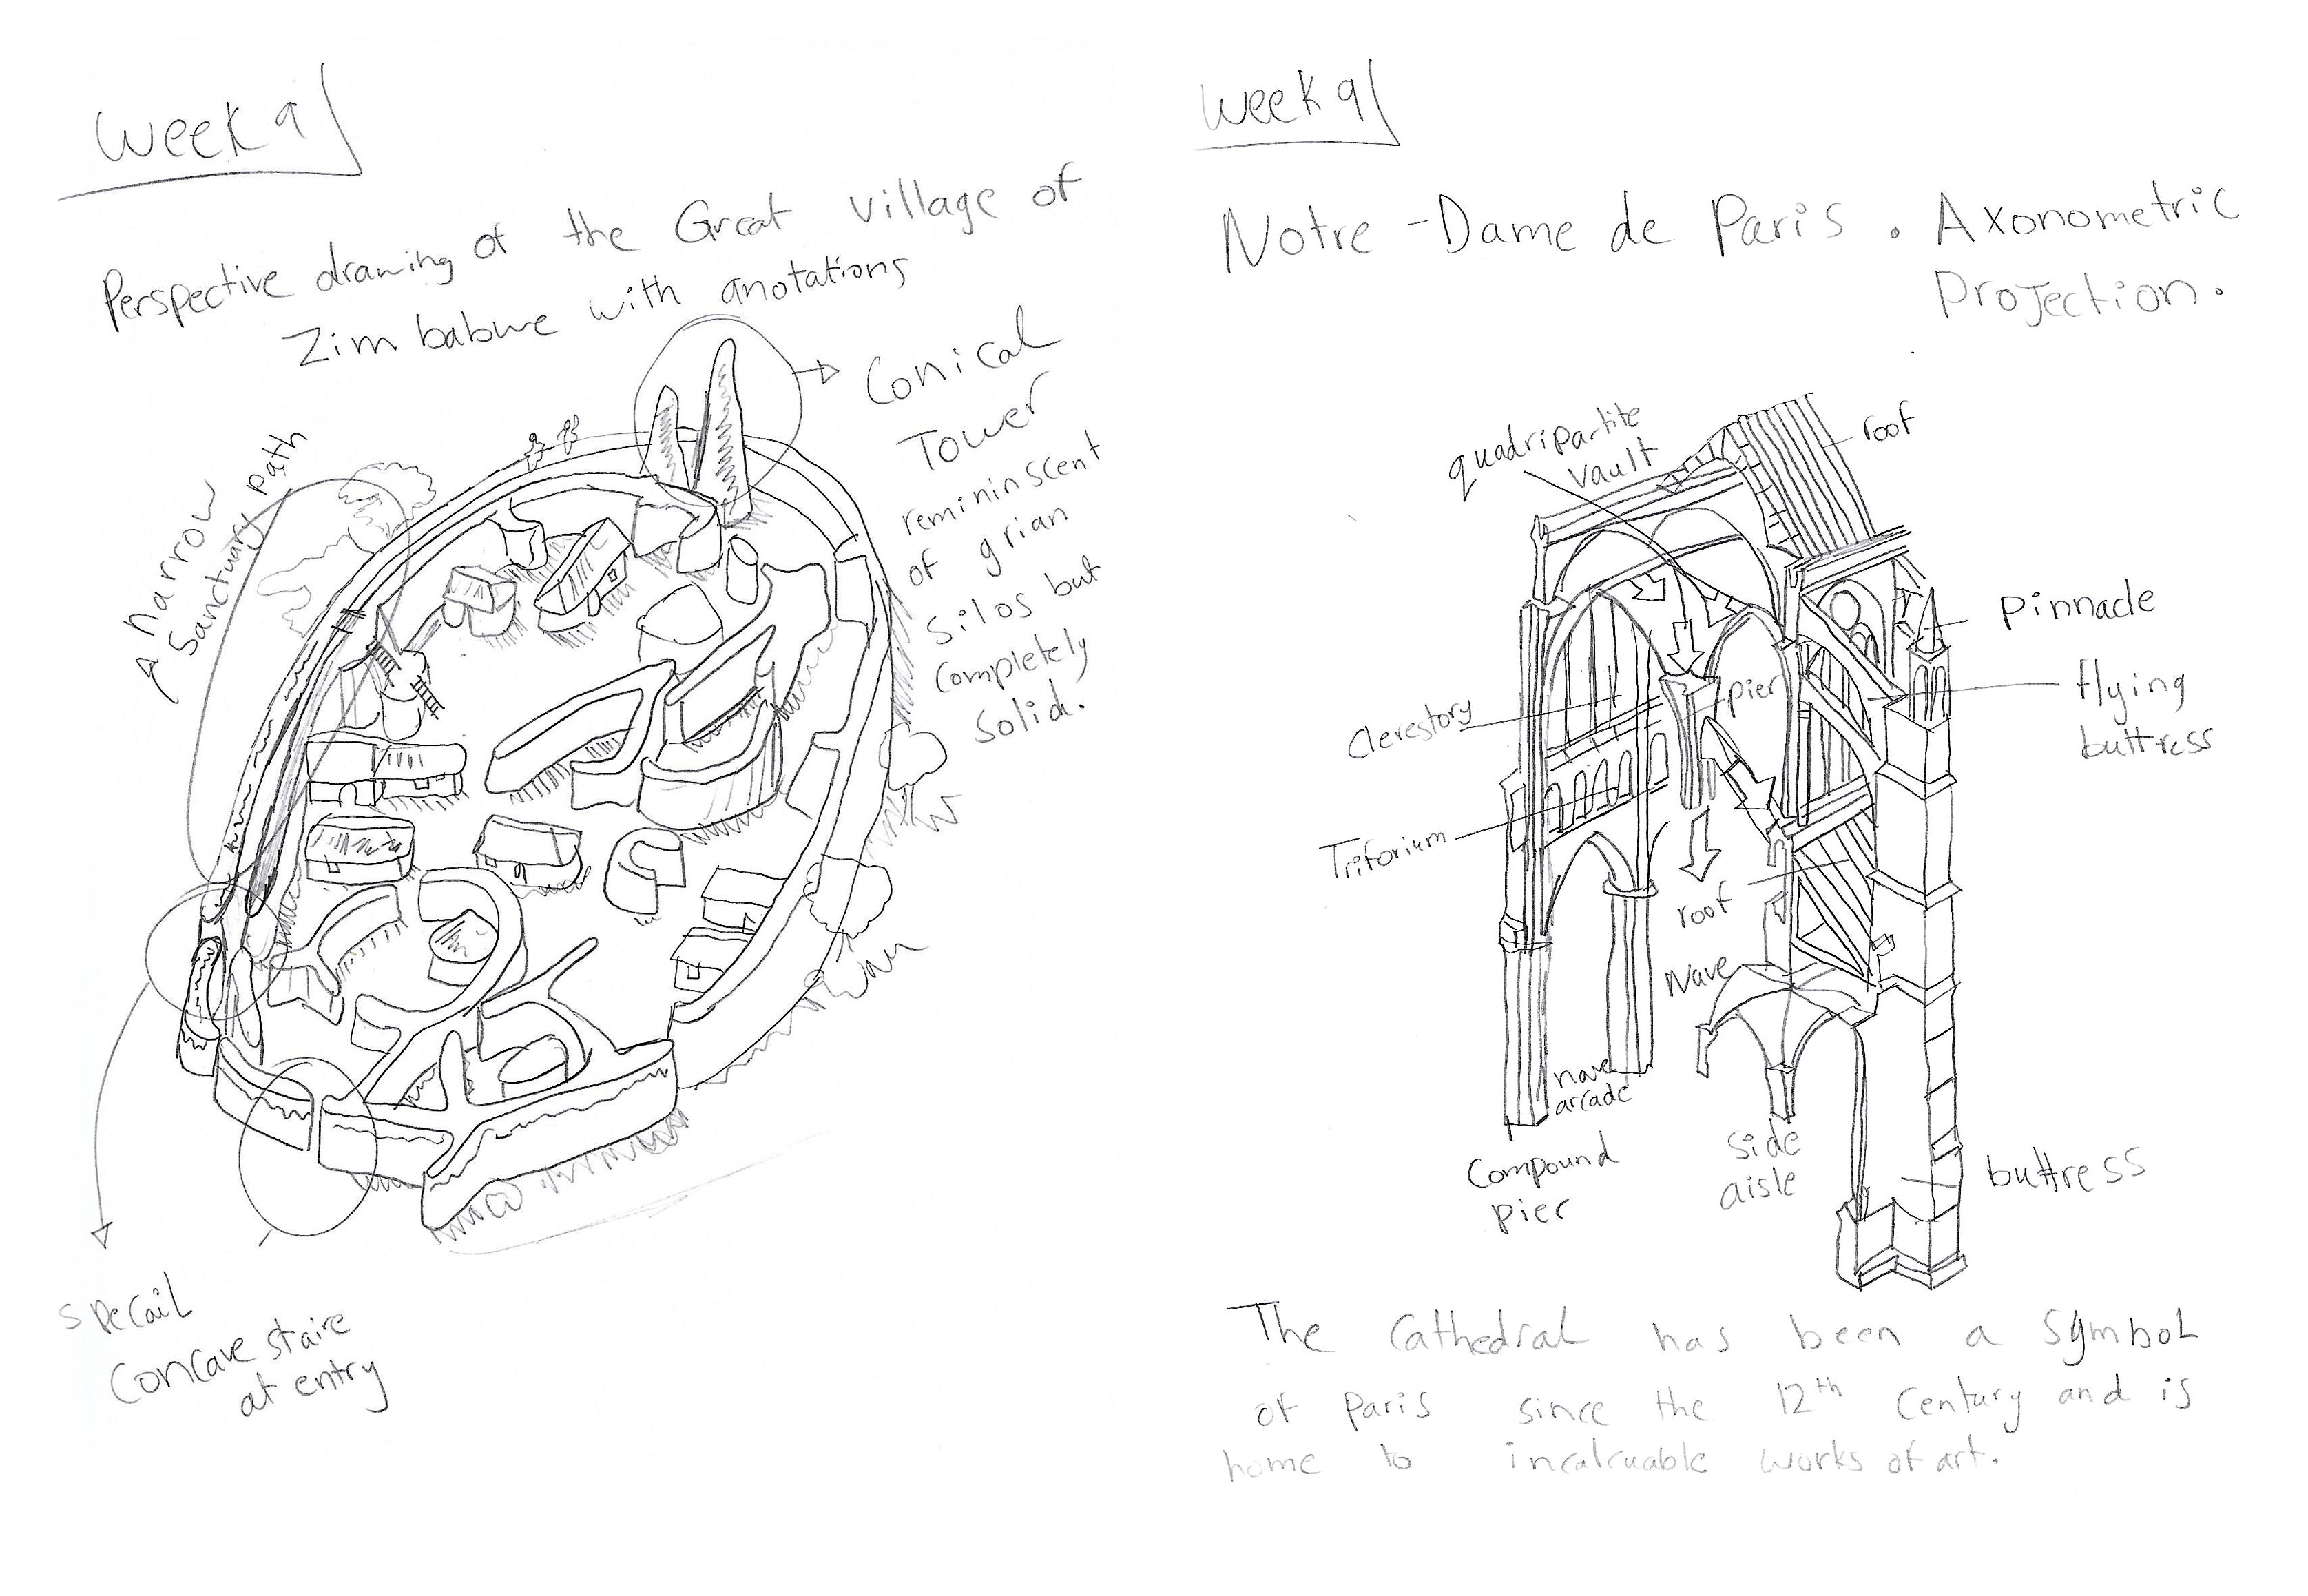 Week 9
Perspective drawing of the Great village of
Zimbabwe with anotations
Conical
Tower
remininscent
of grian
silos but
completely
solid.
Narrow
Sanctuary path
specail
Concave staire
at entry
Week 9
Notre-Dame de Paris. Axonometric
Projection.
quadripartite
vault
roof
pinnacle
flying
buttress
pier
Clerestory
Triforium
roof
Nave
nave
arcade
Compound
pier
side
aisle
buttress
The Cathedral has been a symbol
of Paris since the 12th Century and is
home to incalcuable works of art.